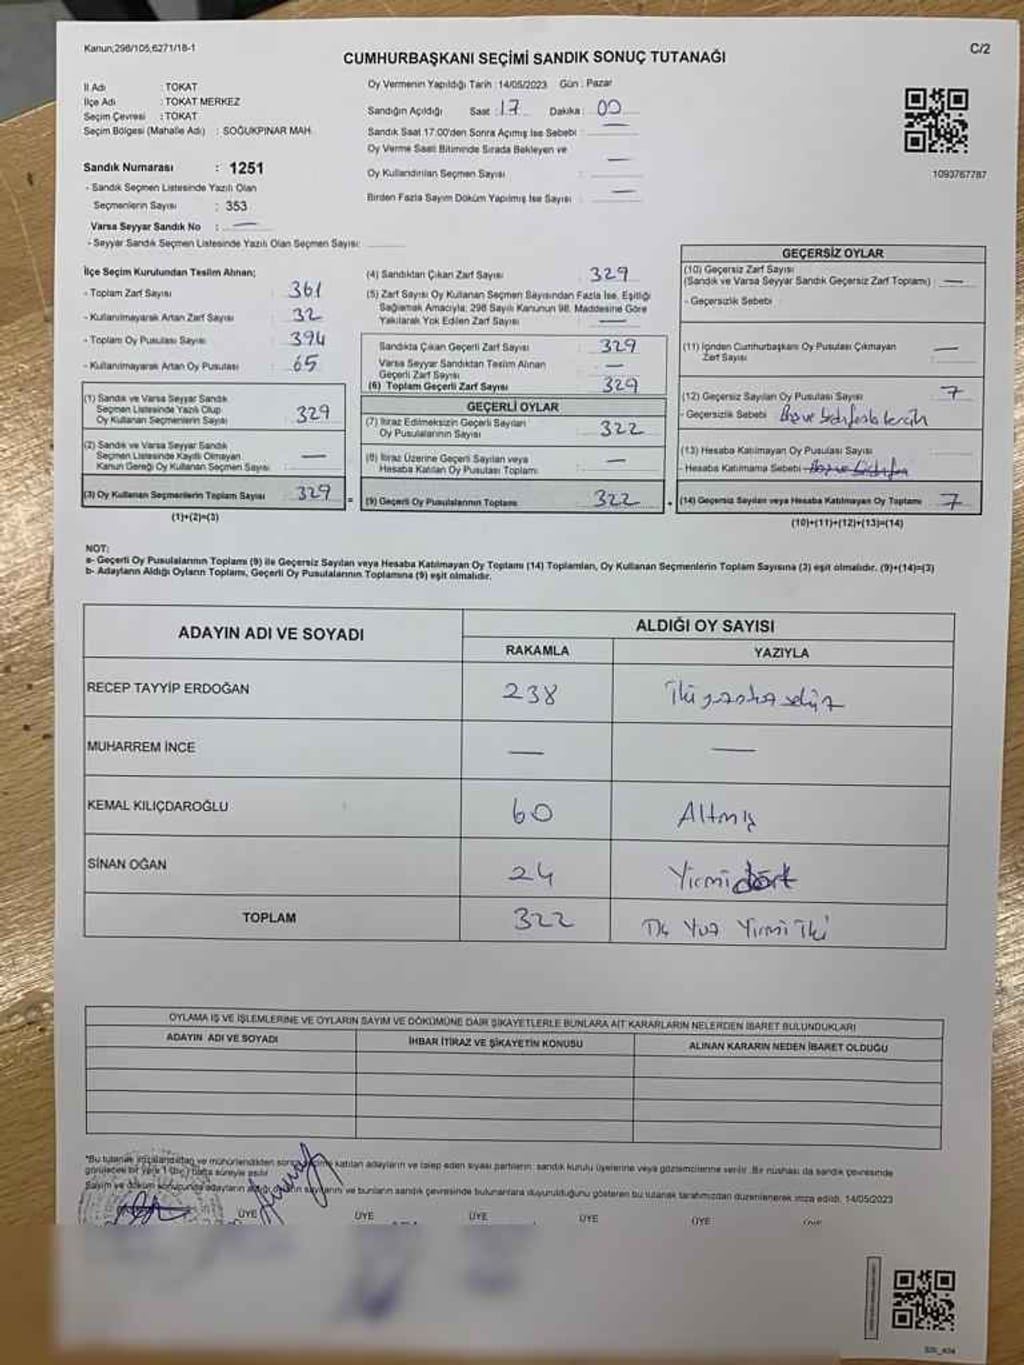 Kanun;298/105,6271/18-1
C/2
CUMHURBAŞKANI SEÇİMİ SANDIK SONUÇ TUTANAĞI
İl Adı : TOKAT
İlçe Adı : TOKAT MERKEZ
Seçim Çevresi : TOKAT
Seçim Bölgesi (Mahalle Adı) : SOĞUKPINAR MAH.
Sandık Numarası : 1251
- Sandık Seçmen Listesinde Yazılı Olan
Seçmenlerin Sayısı : 353
Varsa Seyyar Sandık No : —
- Seyyar Sandık Seçmen Listesinde Yazılı Olan Seçmen Sayısı:
Oy Vermenin Yapıldığı Tarih :14/05/2023 Gün : Pazar
Sandığın Açıldığı Saat : 17 Dakika : 00
Sandık Saat 17:00'den Sonra Açılmış İse Sebebi : —
Oy Verme Saati Bitiminde Sırada Bekleyen ve
Oy Kullandırılan Seçmen Sayısı : —
Birden Fazla Sayım Döküm Yapılmış İse Sayısı : —
1093767787
İlçe Seçim Kurulundan Teslim Alınan;
- Toplam Zarf Sayısı : 361
- Kullanılmayarak Artan Zarf Sayısı : 32
- Toplam Oy Pusulası Sayısı : 394
- Kullanılmayarak Artan Oy Pusulası : 65
(1) Sandık ve Varsa Seyyar Sandık
Seçmen Listesinde Yazılı Olup
Oy Kullanan Seçmenlerin Sayısı : 329
(2) Sandık ve Varsa Seyyar Sandık
Seçmen Listesinde Kayıtlı Olmayan
Kanun Gereği Oy Kullanan Seçmen Sayısı : —
(3) Oy Kullanan Seçmenlerin Toplam Sayısı : 329
(1)+(2)=(3)
(4) Sandıktan Çıkan Zarf Sayısı : 329
(5) Zarf Sayısı Oy Kullanan Seçmen Sayısından Fazla İse, Eşitliği
Sağlamak Amacıyla; 298 Sayılı Kanunun 98. Maddesine Göre
Yakılarak Yok Edilen Zarf Sayısı : —
Sandıkta Çıkan Geçerli Zarf Sayısı : 329
Varsa Seyyar Sandıktan Teslim Alınan
Geçerli Zarf Sayısı : —
(6) Toplam Geçerli Zarf Sayısı : 329
GEÇERLİ OYLAR
(7) İtiraz Edilmeksizin Geçerli Sayılan
Oy Pusulalarının Sayısı : 322
(8) İtiraz Üzerine Geçerli Sayılan veya
Hesaba Katılan Oy Pusulası Toplamı : —
(9) Geçerli Oy Pusulalarının Toplamı : 322
GEÇERSİZ OYLAR
(10) Geçersiz Zarf Sayısı
(Sandık ve Varsa Seyyar Sandık Geçersiz Zarf Toplamı) : —
- Geçersizlik Sebebi
(11) İçinden Cumhurbaşkanı Oy Pusulası Çıkmayan
Zarf Sayısı : —
(12) Geçersiz Sayılan Oy Pusulası Sayısı : 7
- Geçersizlik Sebebi
(13) Hesaba Katılmayan Oy Pusulası Sayısı
- Hesaba Katılmama Sebebi
(14) Geçersiz Sayılan veya Hesaba Katılmayan Oy Toplamı : 7
(10)+(11)+(12)+(13)=(14)
NOT:
a- Geçerli Oy Pusulalarının Toplamı (9) ile Geçersiz Sayılan veya Hesaba Katılmayan Oy Toplamı (14) Toplamları, Oy Kullanan Seçmenlerin Toplam Sayısına (3) eşit olmalıdır. (9)+(14)=(3)
b- Adayların Aldığı Oyların Toplamı, Geçerli Oy Pusulalarının Toplamına (9) eşit olmalıdır.
ADAYIN ADI VE SOYADI
ALDIĞI OY SAYISI
RAKAMLA YAZIYLA
RECEP TAYYİP ERDOĞAN 238
MUHARREM İNCE — —
KEMAL KILIÇDAROĞLU 60 Altmış
SİNAN OĞAN 24 Yirmidört
TOPLAM 322 Üç Yüz Yirmi İki
OYLAMA İŞ VE İŞLEMLERİNE VE OYLARIN SAYIM VE DÖKÜMÜNE DAİR ŞİKAYETLERLE BUNLARA AİT KARARLARIN NELERDEN İBARET BULUNDUKLARI
ADAYIN ADI VE SOYADI İHBAR İTİRAZ VE ŞİKAYETİN KONUSU ALINAN KARARIN NEDEN İBARET OLDUĞU
*Bu tutanak imzalandıktan ve mühürlendikten katılan adayların ve talep eden siyasi partilerin; sandık kurulu üyelerine veya gözlemcilerine verilir. Bir nüshası da sandık çevresinde
görülecek bir yere 1 (bir) hafta süreyle asılır.
Sayım ve döküm sonucunda adayların aldığı oyların sayılarını ve bunların sandık çevresinde bulunanlara duyurulduğunu gösteren bu tutanak tarafımızdan düzenlenerek imza edildi. 14/05/2023
ÜYE ÜYE ÜYE ÜYE ÜYE